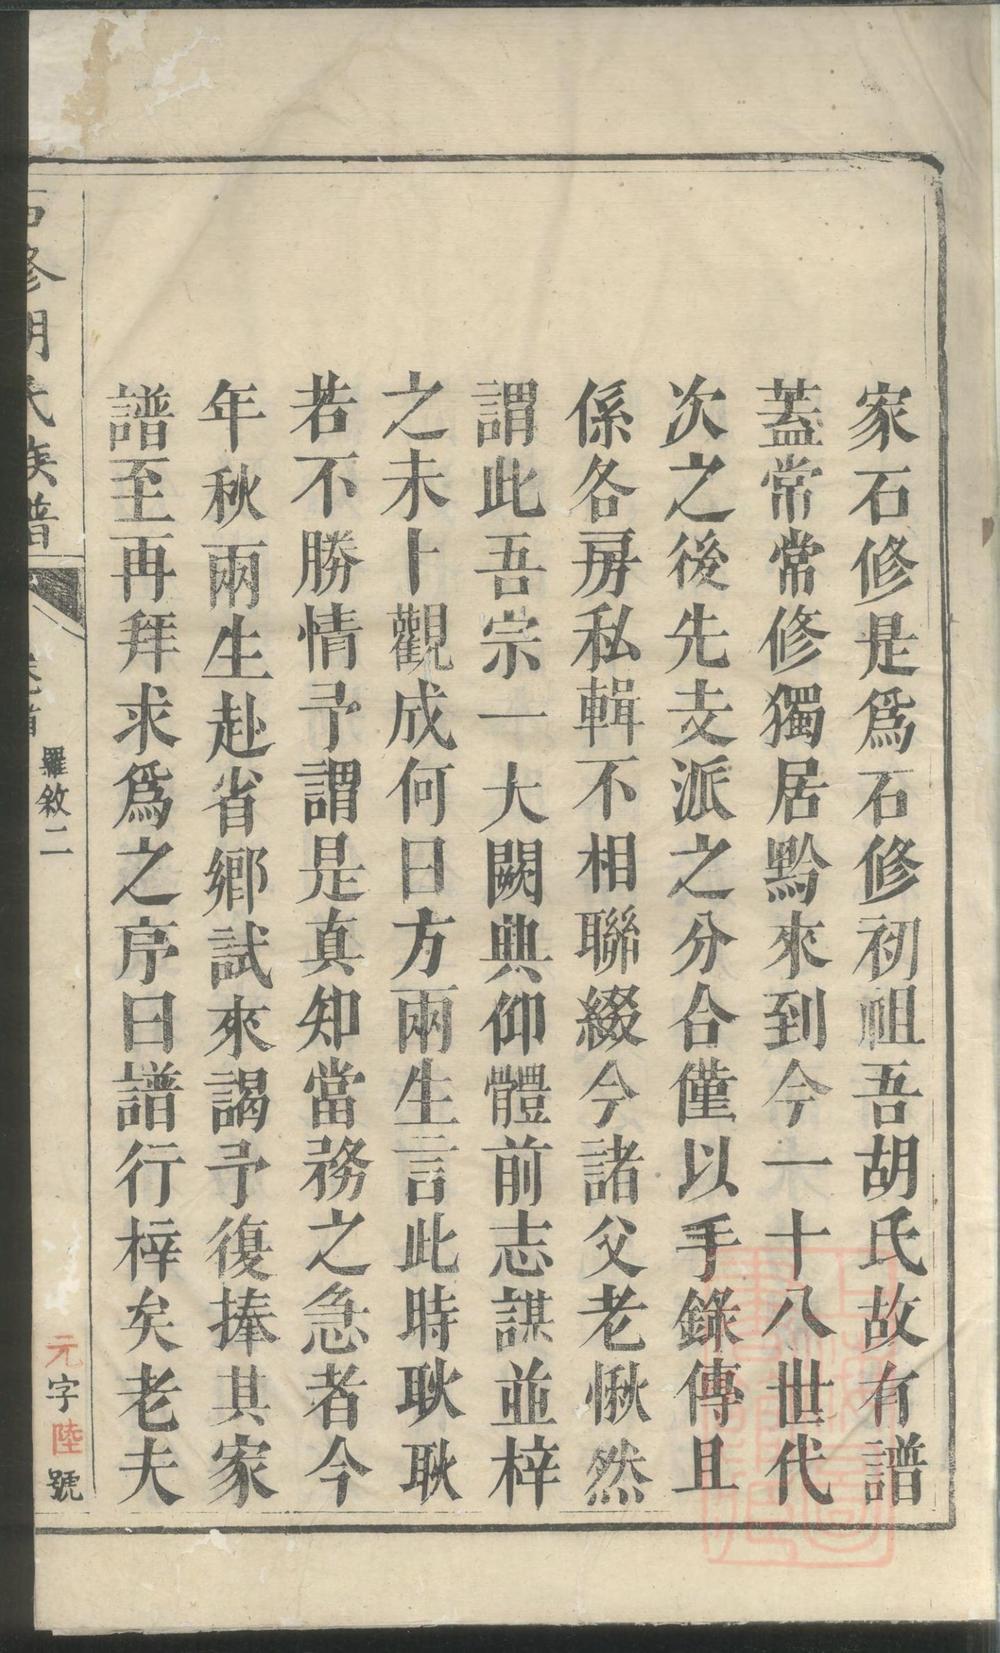 家石修是爲石修初祖吾胡氏故有譜
蓋常常修獨居黔來到今一十八世代
次之後先支派之分合僅以手錄傳且
係各房私輯不相聯綴今諸父老愀然
謂此吾宗一大闕典仰體前志謀並梓
之未卜觀成何日方兩生言此時耿耿
若不勝情予謂是真知當務之急者今
年秋兩生赴省鄉試來謁予復捧其家
譜至再拜求爲之序曰譜行梓矣老夫
石修胡氏族譜 卷首 羅敘二 元字陸號